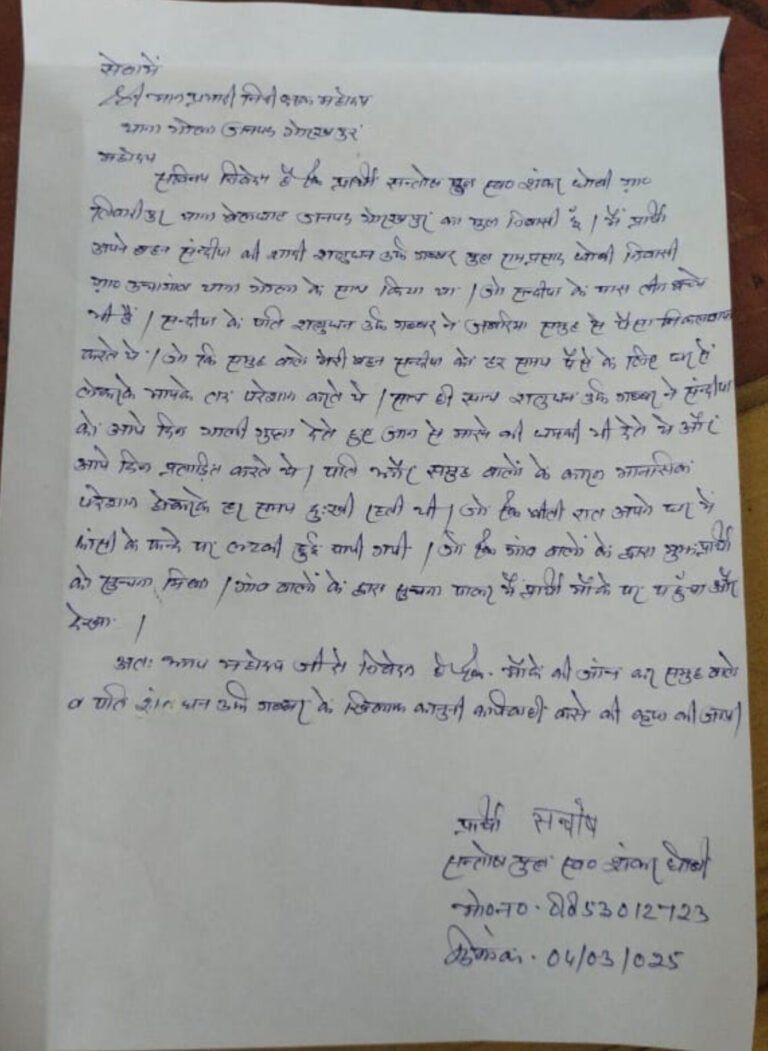 सेवा में
श्रीमान प्रभारी निरीक्षक महोदय
थाना गोला जनपद गोरखपुर
महोदय
सविनय निवेदन है कि प्रार्थी सन्तोष पुत्र स्व० शंकर धोबी ग्रा०
थाना बेलघाट जनपद गोरखपुर का मुल निवासी हूँ । मैं प्रार्थी
अपने बहन संन्दीपा की शादी शत्रुघन उर्फ गब्बर पुत्र रामप्रसाद धोबी निवासी
ग्रा० थाना गोला के साथ किया था । जो सन्दीपा के पास तीन बच्चे
भी हैं । सन्दीपा के पति शत्रुघन उर्फ गब्बर ने समुह से पैसा निकलवाया
करते थे । जो कि समुह वाले मेरी बहन सन्दीपा को हर समय पैसे के लिए घर से
लेकरके मायके तक परेशान करते थे । साथ ही साथ शत्रुघन उर्फ गब्बर ने संन्दीपा
को आये दिन गाली गुप्ता देते हुए जान से मारने की धमकी भी देते थे और
आये दिन प्रताड़ित करते थे । पति और समुह वालों के कारण मानसिक
परेशान होकरके हर समय दुःखी रहती थी । जो कि बीती रात अपने घर में
फांसी के फन्दे पर लटकी हुई पायी गयी । जो कि गांव वालों के द्वारा मुझ प्रार्थी
को सुचना मिला । गांव वालों के द्वारा सुचना पाकर मैं प्रार्थी मौके पर पहुँचा और
देखा ।
अतः श्रीमान महोदय जी से निवेदन है कि मौके की जांच कर समुह वाले
व पति शत्रुघन उर्फ गब्बर के खिलाफ कानुनी कार्यवाही करने की कृपा की जाय।
प्रार्थी सन्तोष
सन्तोष पुत्र स्व० शंकर धोबी
मो०न०. 8853012723
दिनांक. 04/03/025